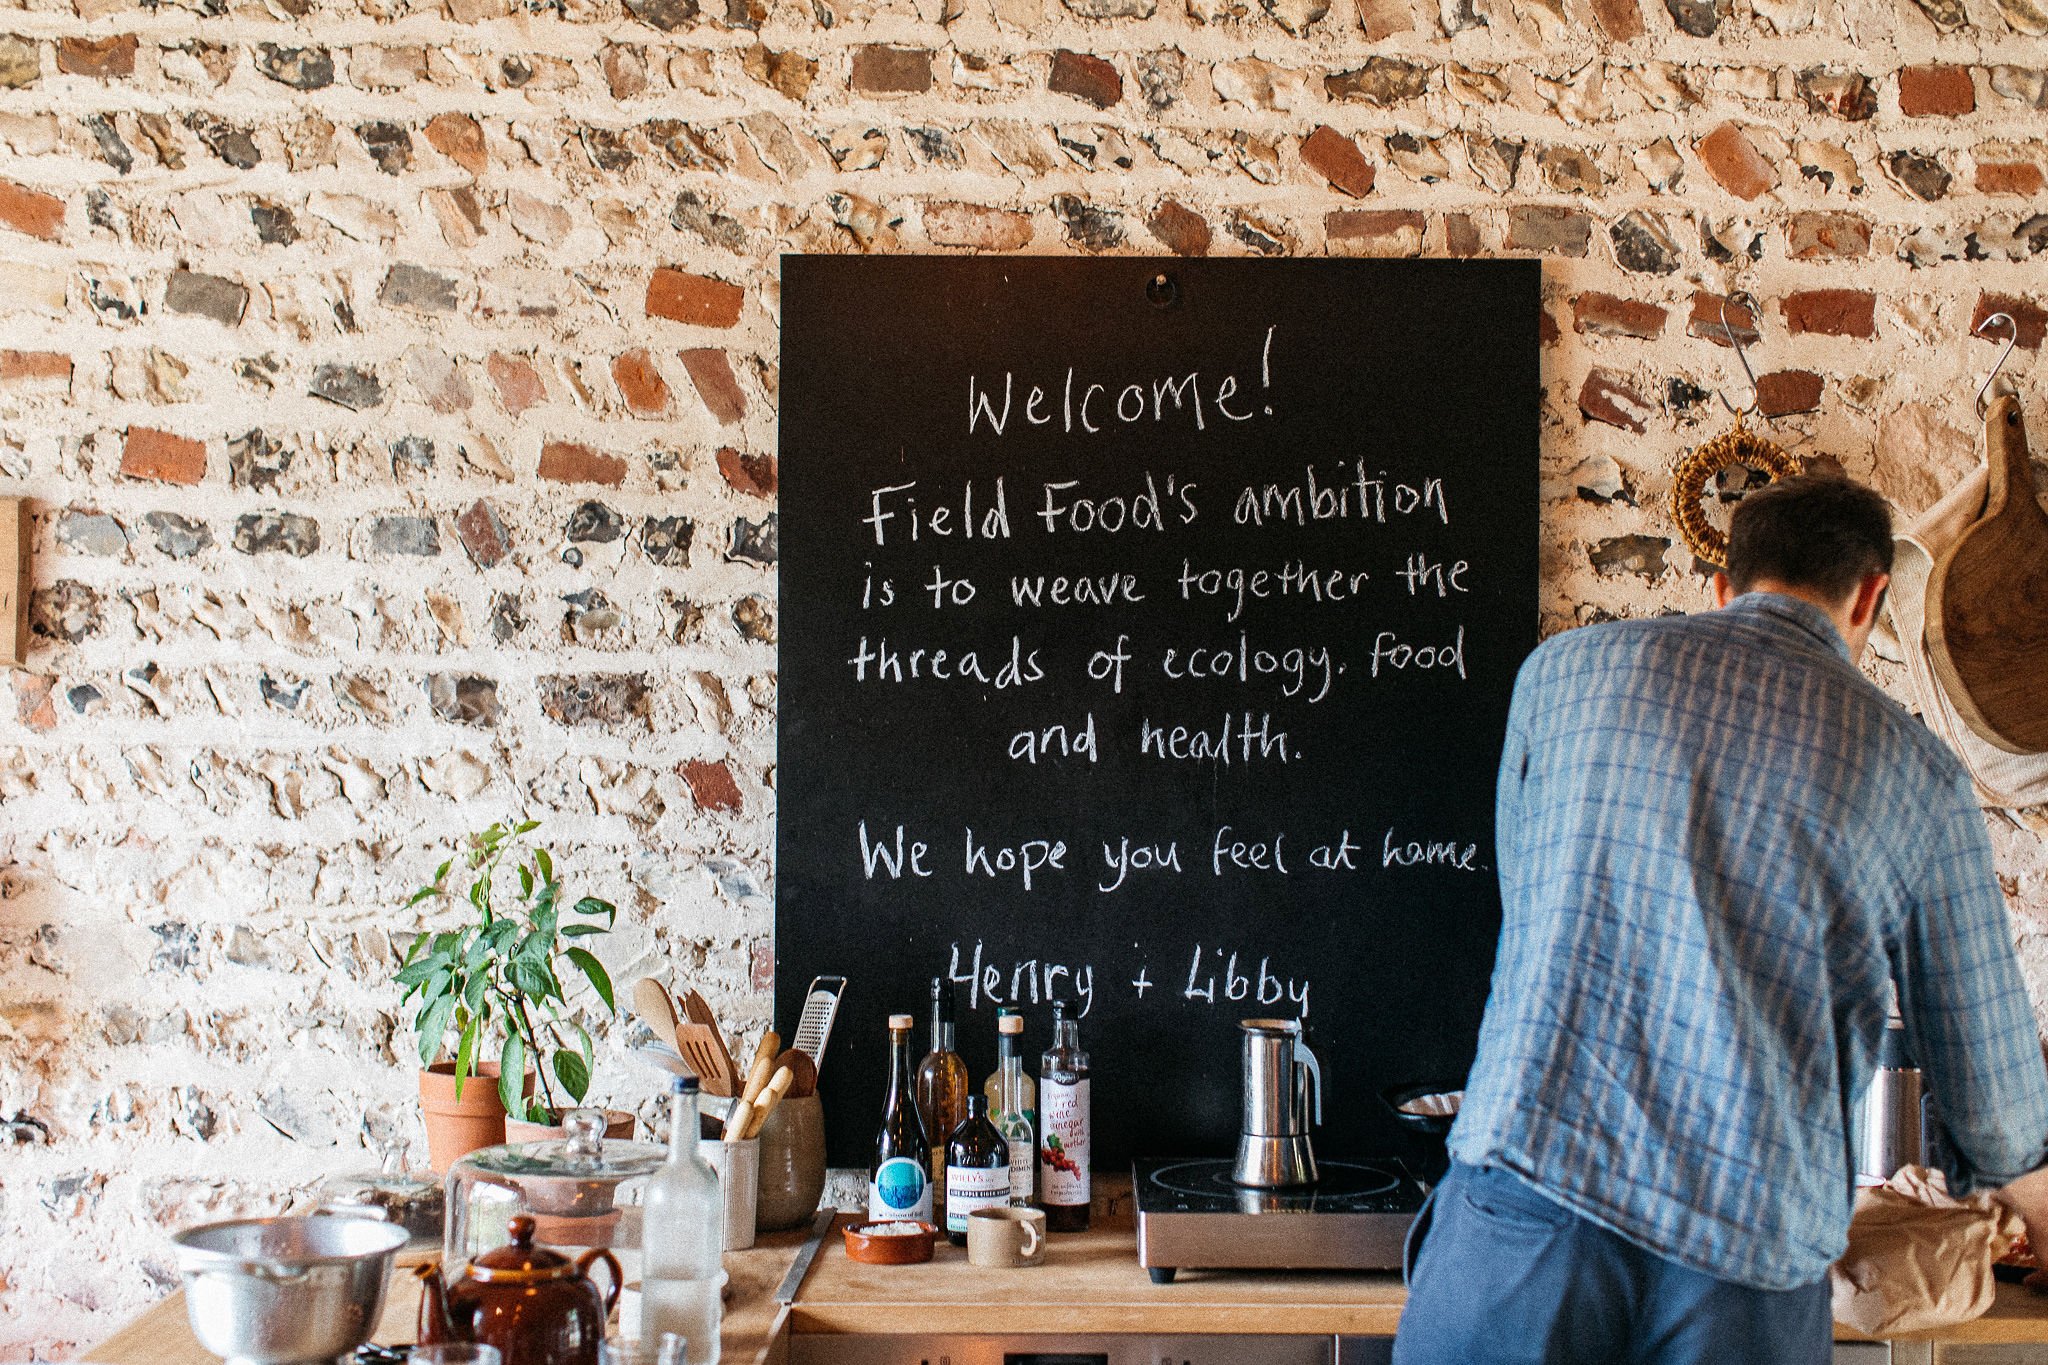 Welcome!
Field Food's ambition
is to weave together the
threads of ecology, food
and health.
We hope you feel at home.
Henry + Libby
WILLY'S
red
wine
vinegar
with
mother